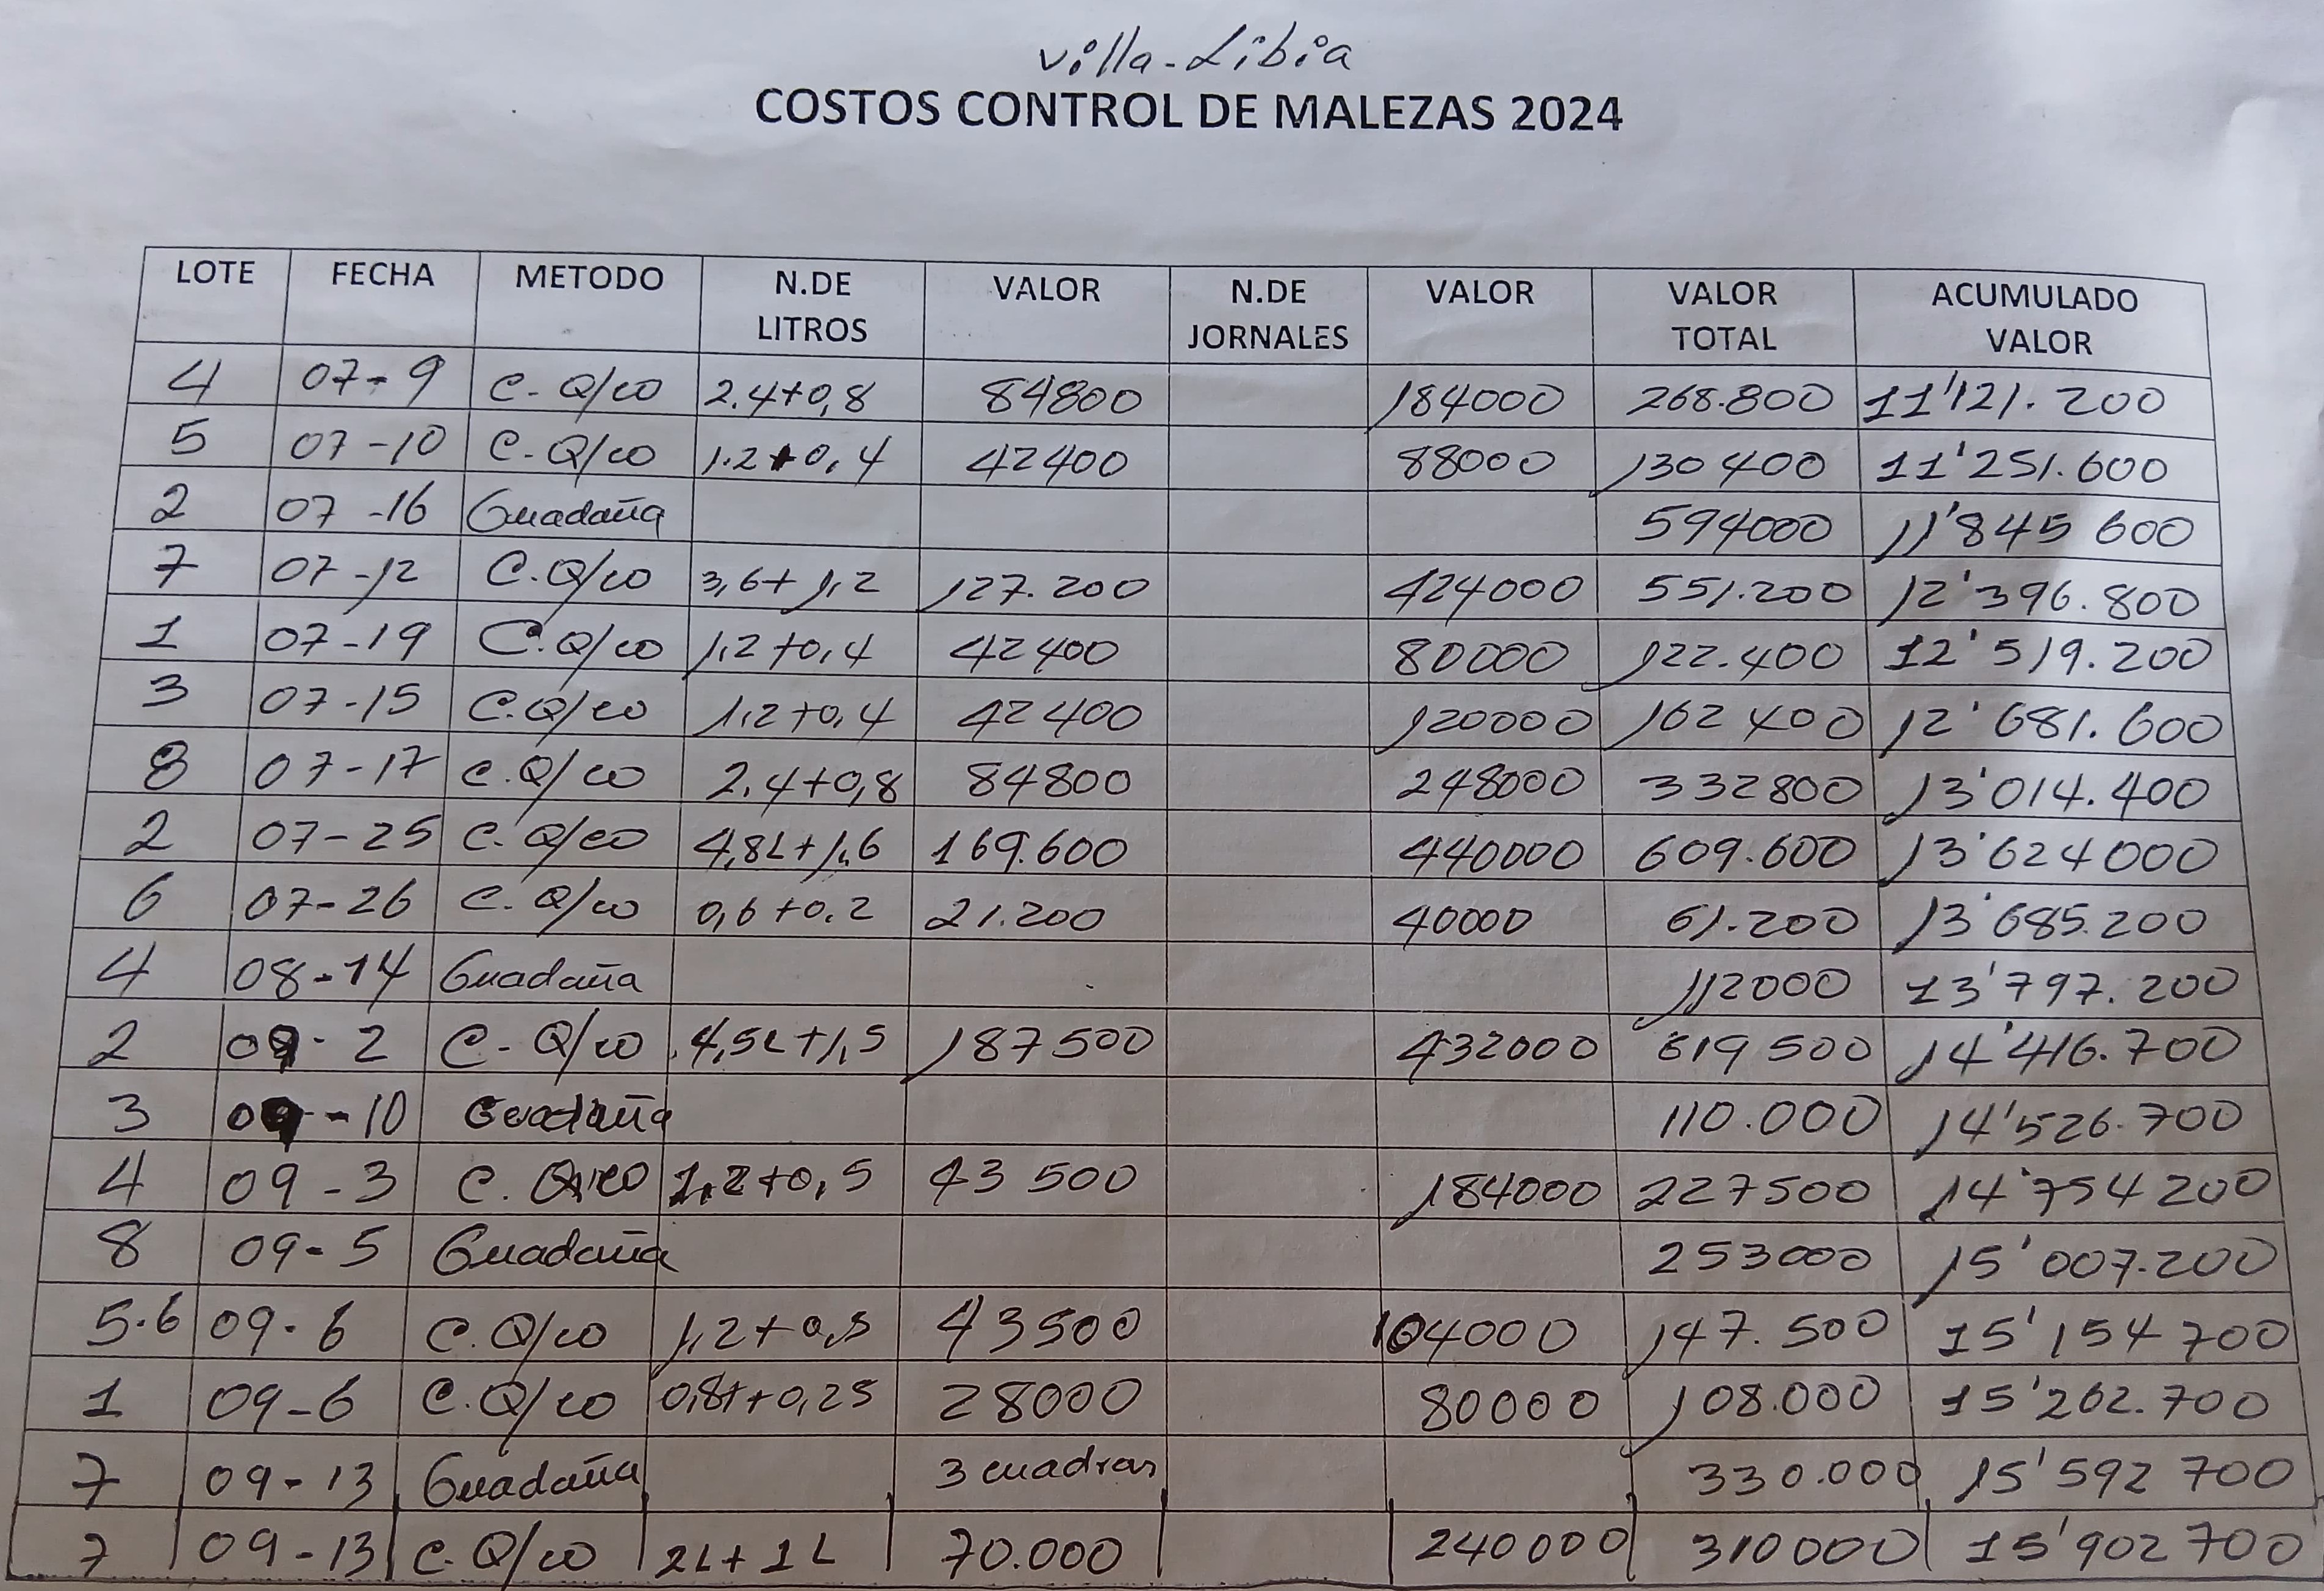 Villa-Libia
COSTOS CONTROL DE MALEZAS 2024
LOTE FECHA METODO N.DE LITROS VALOR N.DE JORNALES VALOR VALOR TOTAL ACUMULADO VALOR
4 07-9 C-Q/co 2.4+0,8 84800 184000 268.800 11'121.200
5 07-10 C-Q/co 1.2+0,4 42400 88000 130400 11'251.600
2 07-16 Guadaña 594000 11'845 600
7 07-12 C.Q/co 3,6+1,2 127.200 424000 551.200 12'396.800
1 07-19 C.Q/co 1,2+0,4 42400 80000 122.400 12'519.200
3 07-15 C.Q/co 1,2+0,4 42400 120000 162400 12'681.600
8 07-17 C.Q/co 2,4+0,8 84800 248000 332800 13'014.400
2 07-25 C.Q/co 4,8L+1,6 169.600 440000 609.600 13'624000
6 07-26 C.Q/co 0,6+0,2 21.200 40000 61.200 13'685.200
4 08-14 Guadaña 112000 13'797.200
2 09-2 C-Q/co 4,5L+1,5 187500 432000 619500 14'416.700
3 09-10 Guadaña 110.000 14'526.700
4 09-3 C.Q/co 1,2+0,5 43500 184000 227500 14'754200
8 09-5 Guadaña 253000 15'007.200
5.6 09-6 C.Q/co 1,2+0,5 43500 104000 147.500 15'154700
1 09-6 C.Q/co 0,8L+0,25 28000 80000 108.000 15'262.700
7 09-13 Guadaña 3 cuadras 330.000 15'592700
7 09-13 C-Q/co 2L+1L 70.000 240000 310000 15'902700